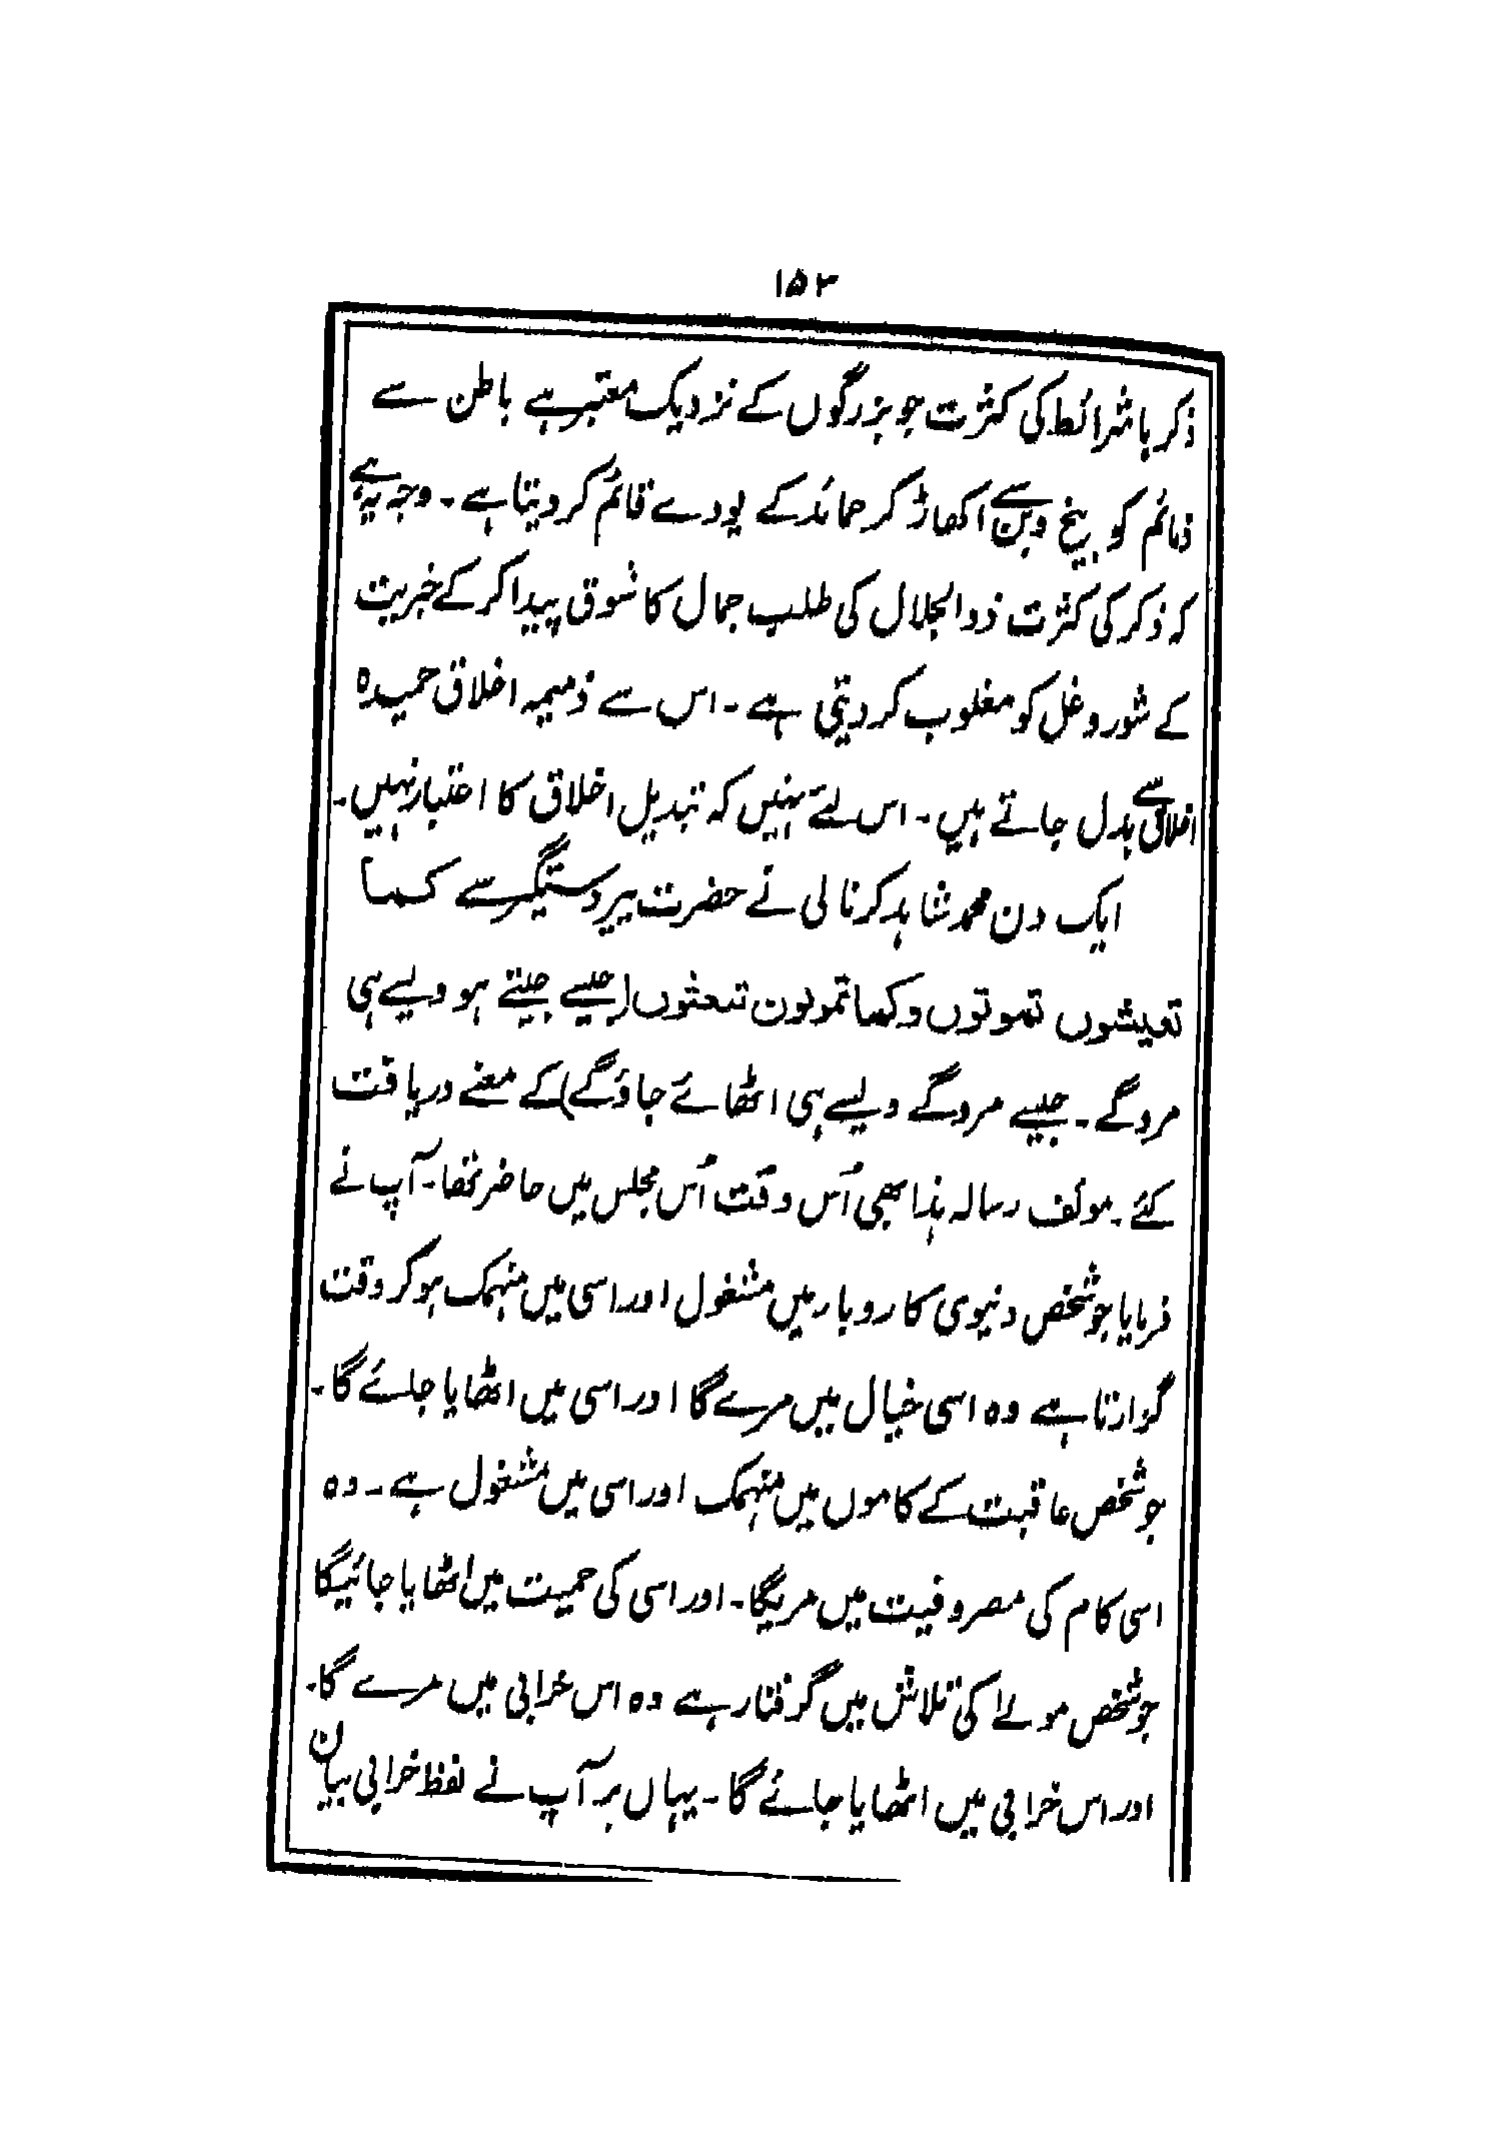 ۱۵۳
ذکر با شرائط کی کثرت جو بزرگوں کے نزدیک معتبر ہے باطن سے
ذمائم کو بیخ وبن سے اکھاڑ کر حمائد کے پودے قائم کر دیتا ہے ۔ وجہ یہ ہے
کہ ذکر کی کثرت ذوالجلال کی طلب جمال کا شوق پیدا کر کے خبریت
کے شور و غل کو مغلوب کر دیتی ہے ۔ اس سے ذمیمہ اخلاق حمیدہ
اخلاق سے بدل جاتے ہیں ۔ اس لئے نہیں کہ تبدیل اخلاق کا اعتبار نہیں ۔
ایک دن محمد شاہد کرنالی نے حضرت پیر دستگیر سے کما
تعیشوں تموتوں وکما تموتون تبعثوں (جیسے جیتے ہو ویسے ہی
مروگے ۔ جیسے مروگے ویسے ہی اٹھائے جاؤگے) کے معنے دریافت
کئے ۔ مولف رسالہ ہذا بھی اُس وقت اُس مجلس میں حاضر تھا ۔ آپ نے
فرمایا جو شخص دنیوی کاروبار میں مشغول اور اسی میں منہمک ہو کر وقت
گزارتا ہے وہ اسی خیال میں مرے گا اور اسی میں اٹھایا جائے گا ۔
جو شخص عاقبت کے کاموں میں منہمک اور اسی میں مشغول ہے ۔ وہ
اسی کام کی مصروفیت میں مریگا ۔ اور اسی کی حمیت میں اٹھایا جائیگا
جو شخص مولےٰ کی تلاش میں گرفتار ہے وہ اس خرابی میں مرے گا ۔
اور اس خرابی میں اٹھایا جائے گا ۔ یہاں پر آپ نے لفظ خرابی بیان